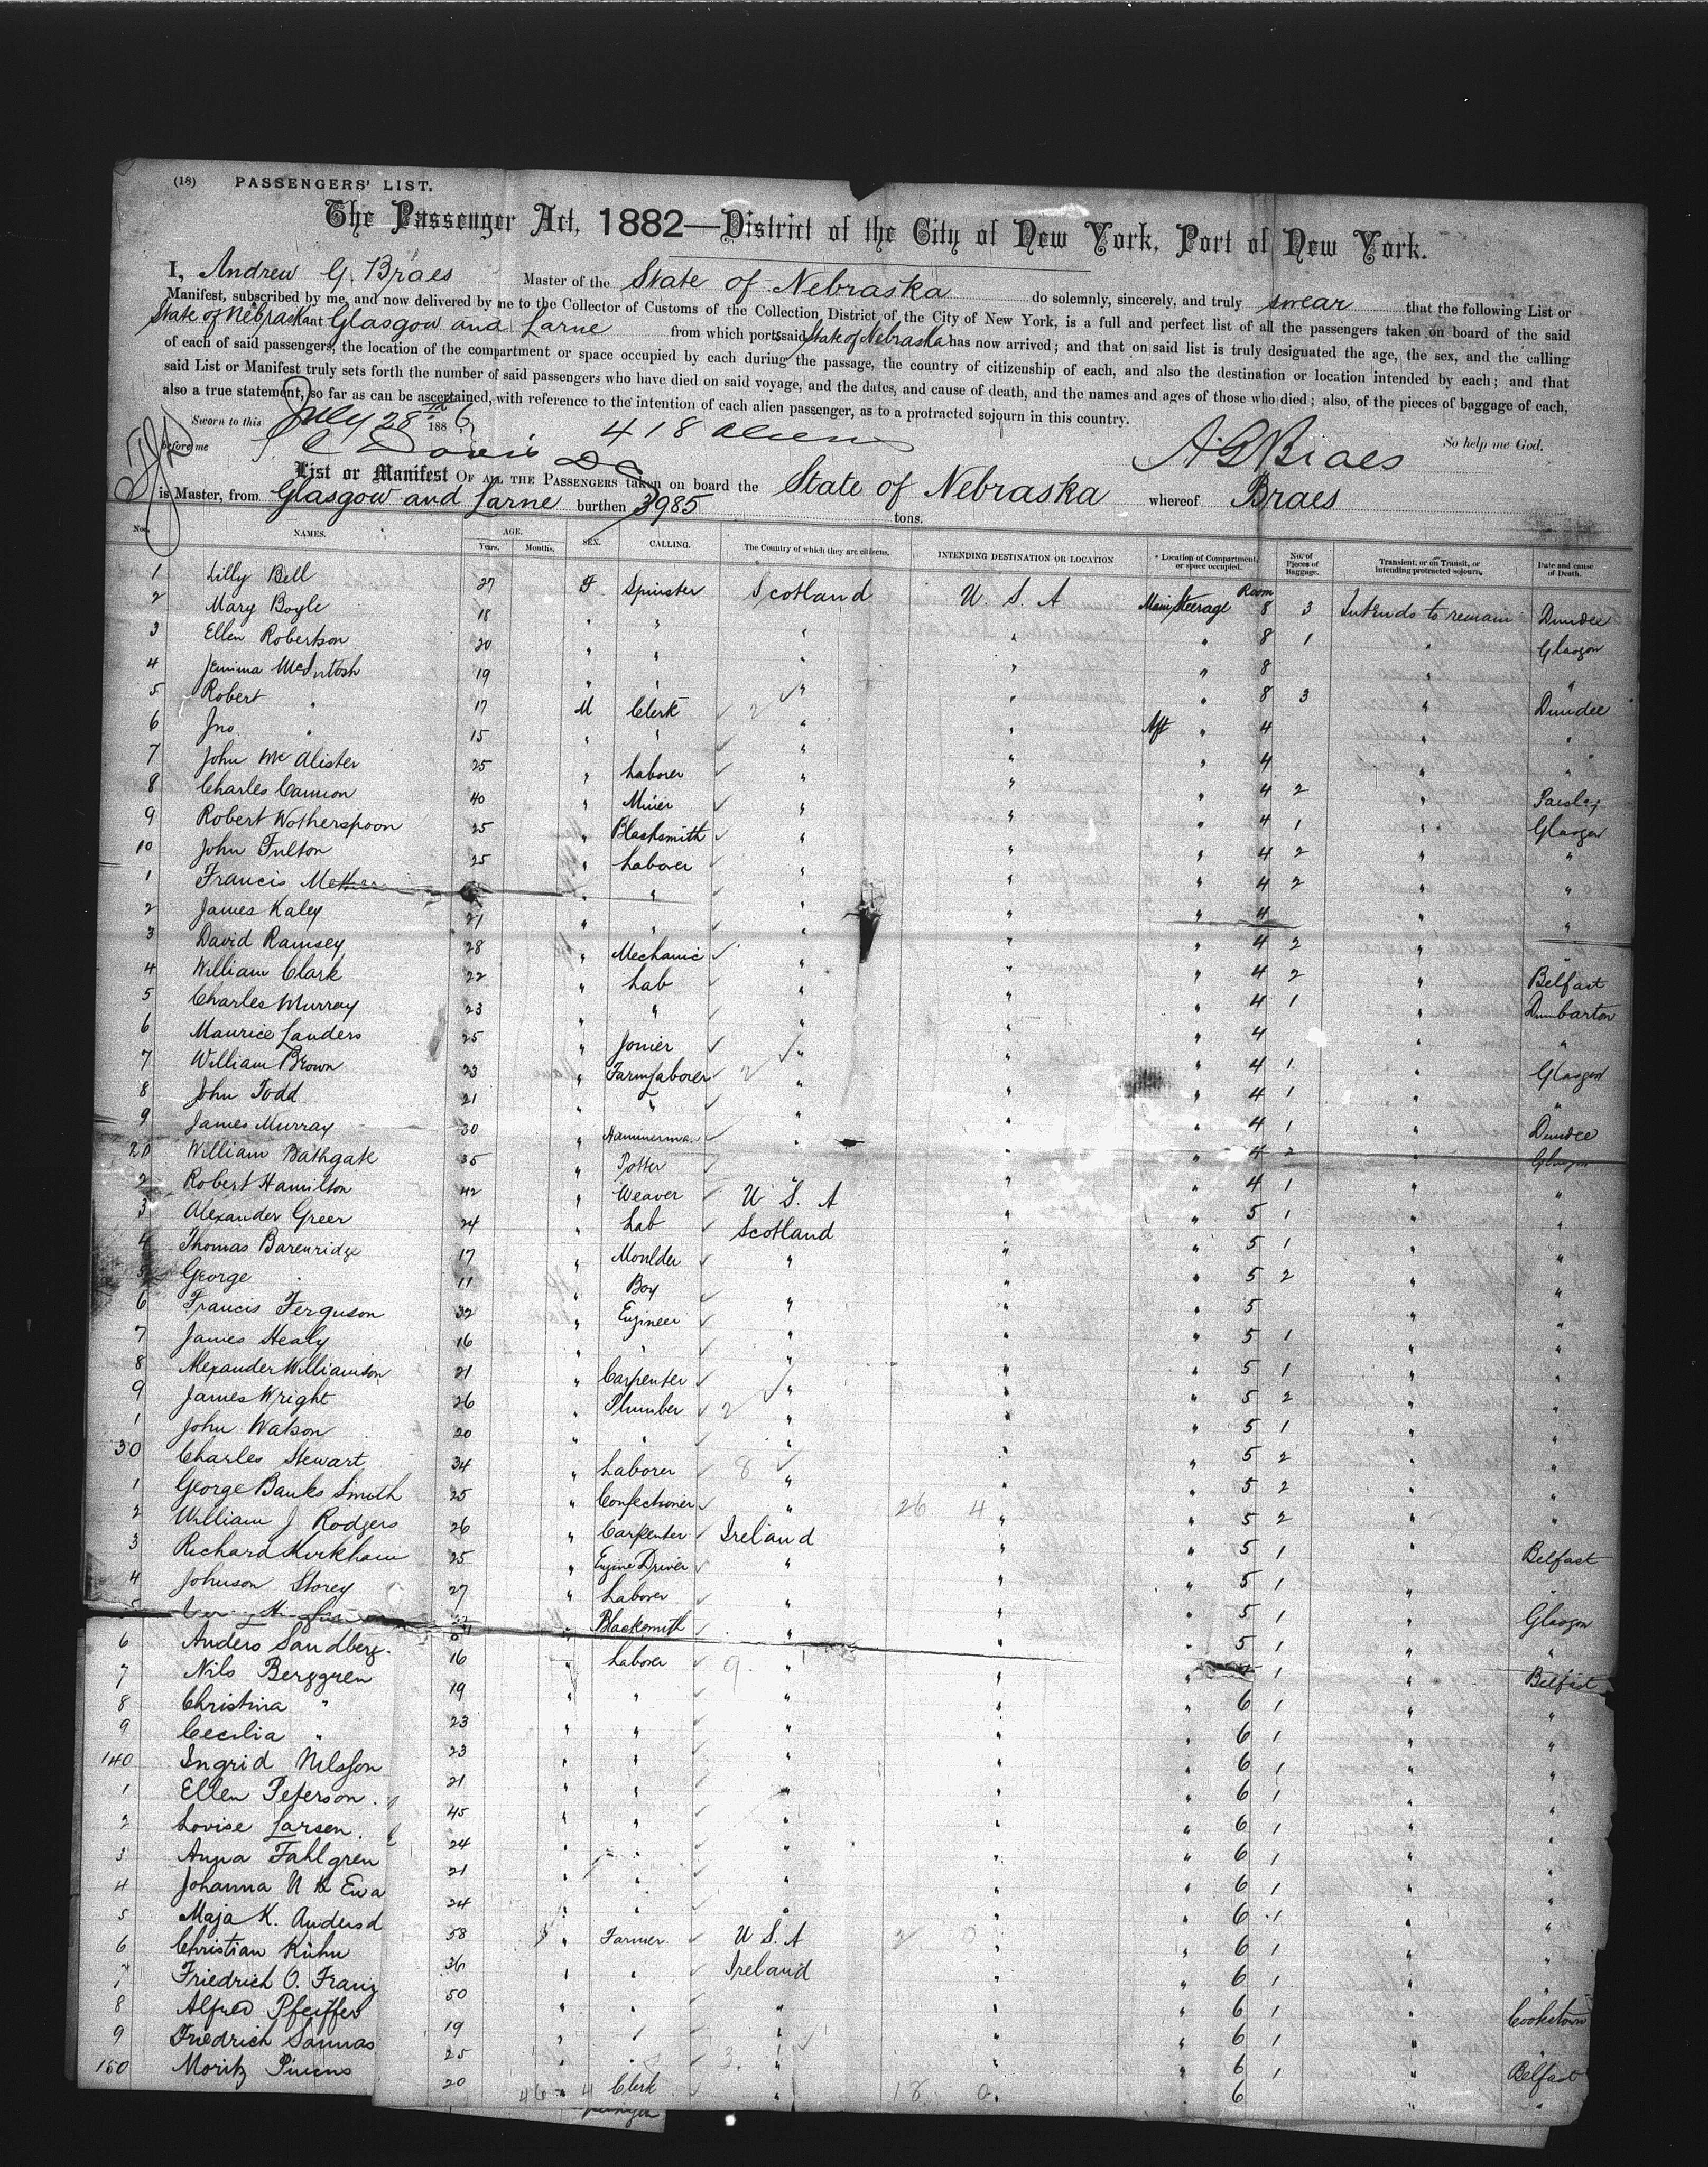 (18) PASSENGERS' LIST.
The Passenger Act, 1882—District of the City of New York, Port of New York.
I, Andrew G. Braes Master of the State of Nebraska do solemnly, sincerely, and truly swear that the following List or
Manifest, subscribed by me, and now delivered by me to the Collector of Customs of the Collection District of the City of New York, is a full and perfect list of all the passengers taken on board of the said
State of Nebraska at Glasgow and Larne from which ports said State of Nebraska has now arrived; and that on said list is truly designated the age, the sex, and the calling
of each of said passengers, the location of the compartment or space occupied by each during the passage, the country of citizenship of each, and also the destination or location intended by each; and that
said List or Manifest truly sets forth the number of said passengers who have died on said voyage, and the dates, and cause of death, and the names and ages of those who died; also, of the pieces of baggage of each,
also a true statement, so far as can be ascertained, with reference to the intention of each alien passenger, as to a protracted sojourn in this country.
Sworn to this July 28th 1886 418 aliens So help me God.
before me Davis A G Braes
List or Manifest OF ALL THE PASSENGERS taken on board the State of Nebraska whereof Braes
is Master, from Glasgow and Larne burthen 3985 tons.
No. NAMES. AGE. Years. Months. SEX. CALLING. The Country of which they are citizens. INTENDING DESTINATION OR LOCATION * Location of Compartment, or space occupied. No. of Pieces of Baggage. Transient, or on Transit, or intending protracted sojourn. Date and cause of Death.
1 Lilly Bell 27 F Spinster Scotland U. S. A Main Steerage Room 8 3 Intends to remain Dundee
2 Mary Boyle 18 " " " " " 8 1 " Glasgow
3 Ellen Robertson 20 " " " " " 8 " "
4 Jemima McIntosh 19 " " " " " 8 3 " Dundee
5 Robert " 17 M Clerk " " Aft " 4 " "
6 Jno " 15 " " " " " 4 " "
7 John McAlister 25 " Laborer " " " 4 2 " Paisley
8 Charles Cannon 40 " Miner " " " 4 1 " Glasgow
9 Robert Wotherspoon 25 " Blacksmith " " " 4 2 " "
10 John Fulton 25 " Laborer " " " 4 2 " "
1 Francis " " " " " 4 " "
2 James Kaley 21 " " " " " 4 2 " "
3 David Ramsey 28 " Mechanic " " " 4 2 " Belfast
4 William Clark 22 " Lab " " " 4 1 " Dumbarton
5 Charles Murray 23 " " " " " 4 " "
6 Maurice Landers 25 " Joiner " " " 4 1 " Glasgow
7 William Brown 23 " Farm Laborer " " " 4 1 " "
8 John Todd 21 " " " " " 4 1 " Dundee
9 James Murray 30 " Hammerman " " " 4 2 " Glasgow
20 William Bathgate 35 " Potter " " " 4 1 " "
2 Robert Hamilton 42 " Weaver U S. A " " 5 1 " "
3 Alexander Greer 24 " Lab Scotland " " 5 1 " "
4 Thomas Barenridge 17 " Moulder " " " 5 2 " "
5 George " 11 " Boy " " " 5 " "
6 Francis Ferguson 32 " Engineer " " " 5 1 " "
7 James Healy 16 " " " " " 5 1 " "
8 Alexander Williamson 21 " Carpenter " " " 5 2 " "
9 James Wright 26 " Plumber " " " 5 1 " "
1 John Watson 20 " " " " " 5 2 " "
30 Charles Stewart 34 " Laborer " " " 5 2 " "
1 George Banks Smith 25 " Confectioner " 26 4 " " 5 2 " "
2 William J Rodgers 26 " Carpenter Ireland " " 5 1 " Belfast
3 Richard Kirkham 25 " Engine Driver " " " 5 1 " "
4 Johnson Storey 27 " Laborer " " " 5 1 " Glasgow
5 " Blacksmith " " " 5 1 " "
6 Anders Sandberg. 16 " Laborer " " " 1 " Belfast
7 Nils Berggren 19 " " " " " 6 1 " "
8 Christina " 23 " " " " " 6 1 " "
9 Cecilia " 23 " " " " " 6 1 " "
140 Ingrid Nilsson 21 " " " " " 6 1 " "
1 Ellen Peterson. 45 " " " " " 6 1 " "
2 Lovise Larsen. 24 " " " " " 6 1 " "
3 Anna Fahlgren 21 " " " " " 6 1 " "
4 Johanna U K Eva 24 " " " " " 6 1 " "
5 Maja K. Andersd 58 " Farmer U S. A 2 0 " " 6 1 " "
6 Christian Kühn 36 " " Ireland " " 6 1 " "
7 Friedrich O. Franz 50 " " " " " 6 1 " Cookstown
8 Alfred Pfeiffer 19 " " " " " 6 1 " "
9 Friedrich Sannas 25 " " " " " 6 1 " Belfast
150 Moritz 20 46 4 Clerk " 18 0 " 6 " "